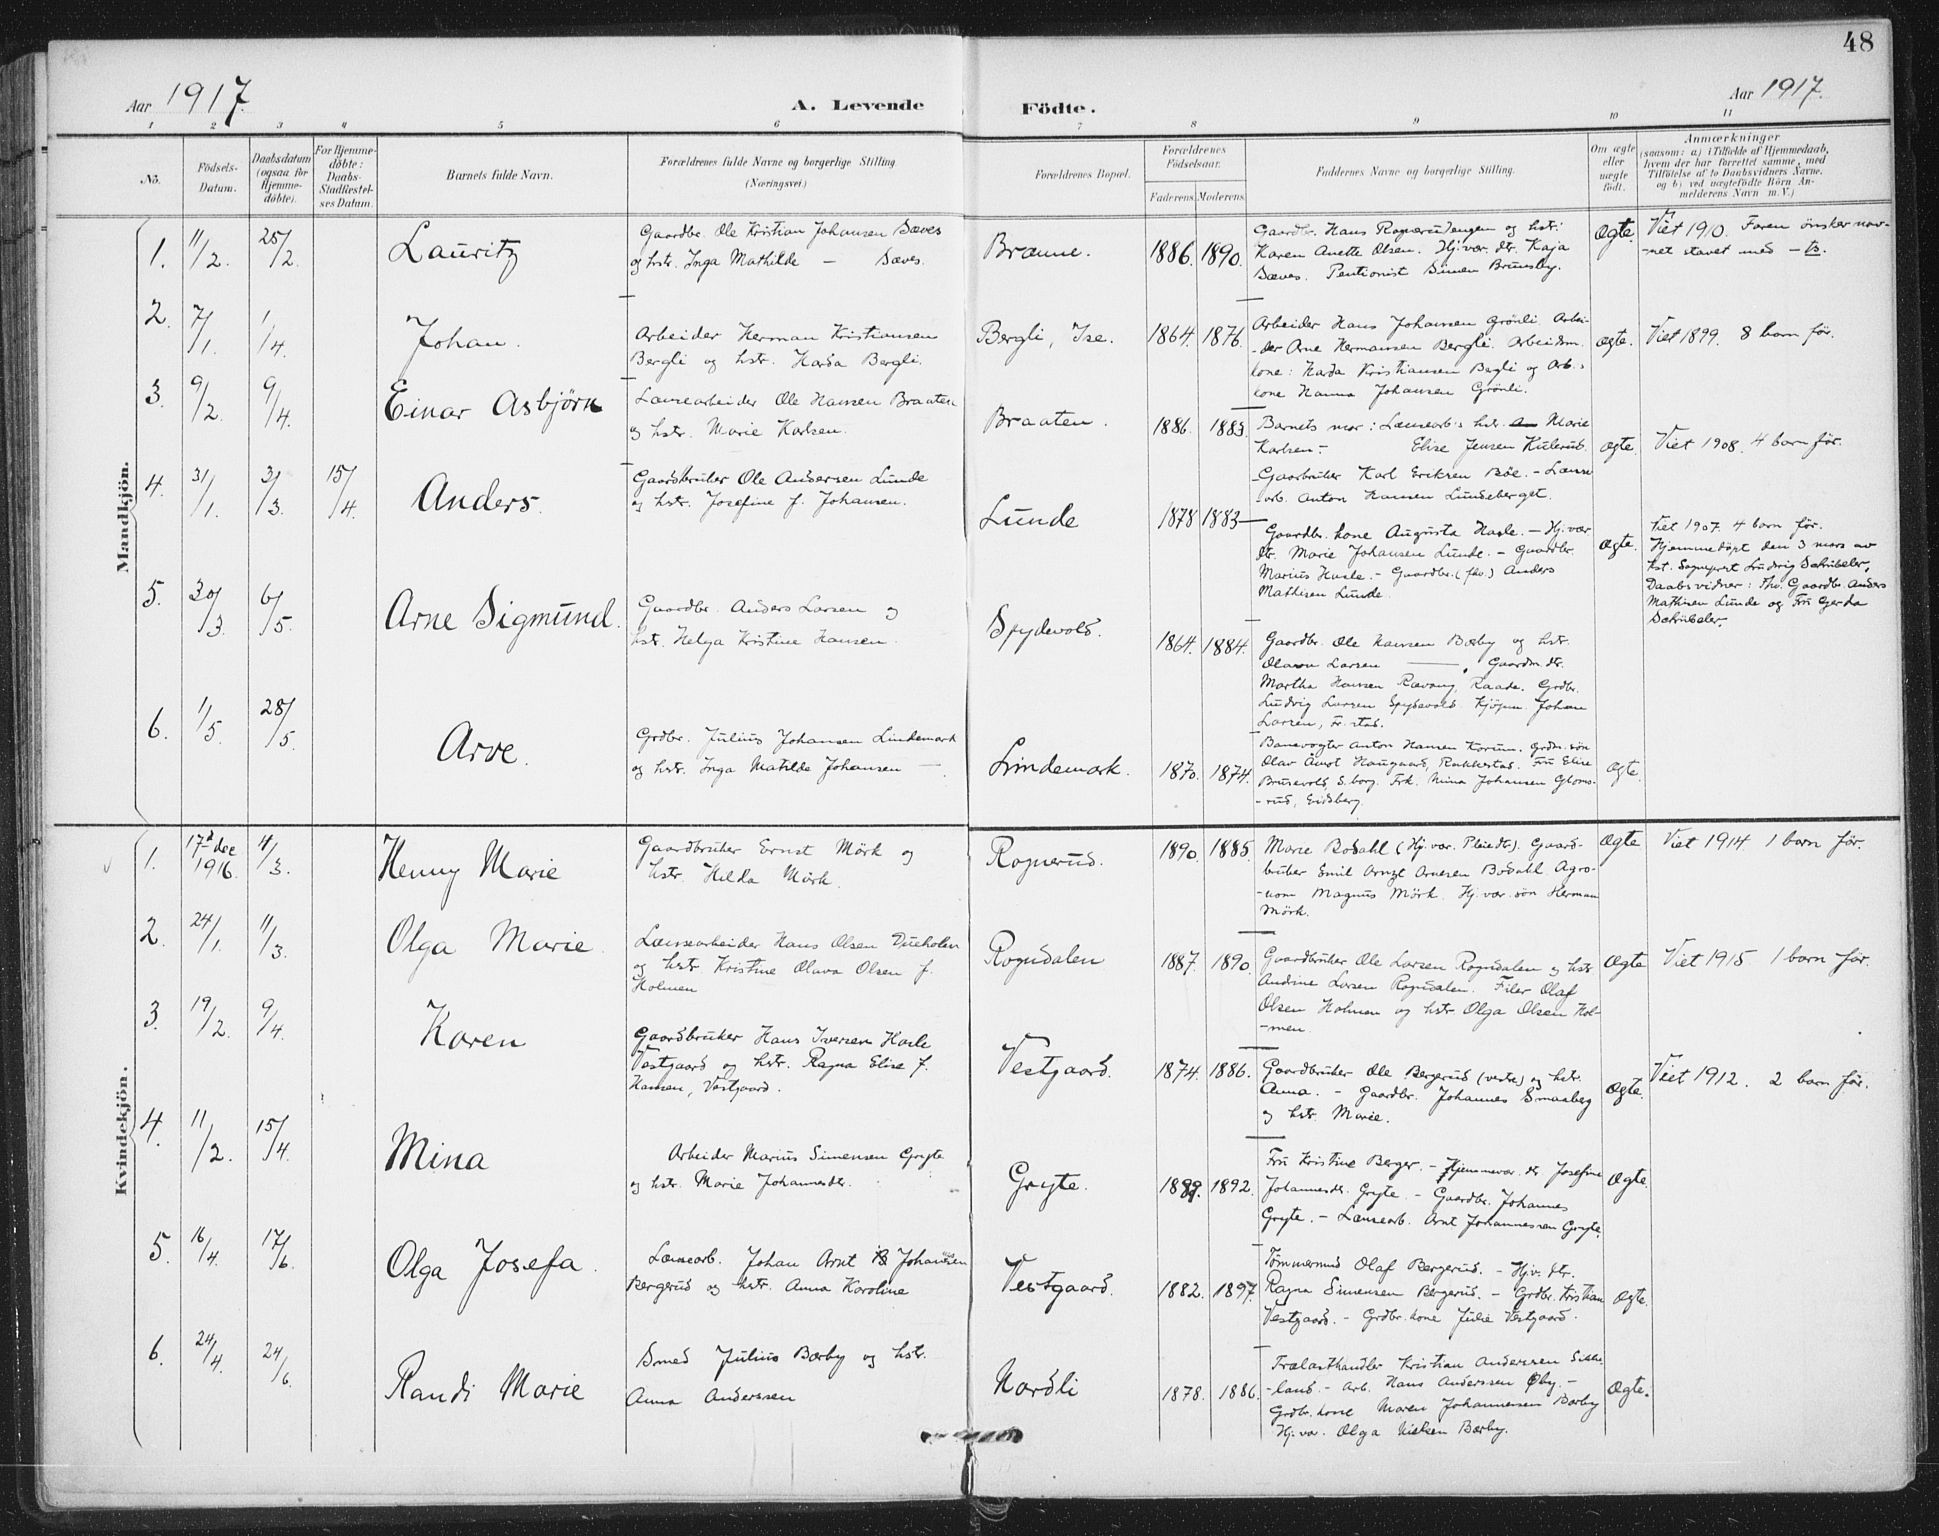 48
Aar 1917.
A. Levende
Födte.
Aar 1917.
1 2 3 4 5 6 7 8 9 10 11
No.
Födsels-Datum.
Daabsdatum (ogsaa for Hjemmedöbte).
For Hjemmedöbte: Daabs-Stadfæstelses Datum.
Barnets fulde Navn.
Forældrenes fulde Navne og borgerlige Stilling (Næringsvei.)
Forældrenes Bopæl.
Forældrenes Födselsaar.
Faderens. Moderens.
Faddernes Navne og borgerlige Stilling.
Om ægte eller uægte født.
Anmærkninger
(saasom: a) i Tilfælde af Hjemmedaab, hvem der har forrettet samme, med Tilföielse af to Daabsvidners Navne. og b) ved uægtefödte Börn Anmelderens Navn m. V.)
Mandkjön.
1. 11/2. 25/2. Lauritz
Gaardbr. Ole Kristian Johansen Sæves
og hstr. Inga Mathilde — Sæves.
Brænne. 1886. 1890.
Gaardbr. Hans Rognerudengen og hstr:
Karen Anette Olsen. Hj.vær. dtr. Kaja
Sæves. Pentionist Simen Brunsby.
Ægte. Viet 1910. Faren ønsker nav-
-net stavet med — ts.
2. 7/1. 1/4. Johan.
Arbeider Herman Kristiansen
Bergli og hstr. Harda Bergli.
Bergli, Ise. 1864. 1876.
Arbeider Hans Johansen Grönli. Arbei-
-der Arne Hermansen Bergli. Arbeidsm.
kone: Harda Kristiansen Bergli og Arb.s
kone Hanna Johansen Grönli.
ægte. Viet 1899. 8 barn før.
3. 9/2. 9/4. Einar Asbjörn
Lænsearbeider Ole Hansen Braaten
og hstr. Marie Karlsen.
Braaten. 1886. 1883.
Barnets mor: Lænsearb.s hstr. Marie
Karlsen. — Elise Jensen Kulerud.
Gaardbruker Karl Eriksen Böe. — Lænse
arb. Anton Hansen Lundeberget.
ægte Viet 1908. 4 barn før.
4. 31/1. 3/3. 15/4. Anders.
Gaardsbruker Ole Andersen Lunde
og hstr. Josefine f. Johansen.
Lunde 1878 1883
Gaardbr. kone Augusta Hasle. — Hj.vær
dtr. Marie Johansen Lunde. — Gaardbr.
Marius Hasle. — Gaardbr. (fho.) Anders
Mathisen Lunde.
ægte. Viet 1907. 4 barn før.
Hjemmedöpt den 3 mars av
kst. Sognepræst Ludvig Schübeler,
Daabsvidner: fho. Gaardbr. Anders
Mathisen Lunde og Fru Gerda
Schübeler.
5. 30/3. 6/5. Arne Sigmund.
Gaardbr. Anders Larsen og
hstr. Helga Kristine Hansen.
Spydevold. 1864. 1884.
Gaardbr. Ole Hansen Bærby og hstr.
Olava Larsen — Gaardm. dtr.
Martha Hansen Rævang, Raade. Grdbr.
Ludvig Larsen Spydevold. Kjöpm. Johan
Larsen, Fr.stad.
6. 1/5. 28/5. Arve.
Grdbr. Julius Johansen Lindemark
og hstr. Inga Matilde Johansen —.
Lindemark. 1870. 1874.
Banevogter Anton Hansen Korum. Grdm. sön
Olav Ånrot Haugaard, Rakkestad. Fru Elise
Brusevold, S.borg. Frk. Mina Johansen Gloms-
-rud, Eidsberg.
ægte.
Kvindekjön.
1. 17de dec 1916. 4/3. Henny Marie
Gaardbruker Ernst Mörk og
hstr. Hilda Mörk.
Rognerud. 1890. 1885.
Marie Bodahl (Hj.vær. Pleiedtr). Gaard-
bruker Emil Arngt Arnesen Bodahl Agro-
-nom Magnus Mörk. Hj.vær. sön Herman
Mörk.
Ægte Viet 1914 1 barn før.
2. 24/1. 11/3. Olga Marie.
Lænsearbeider Hans Olsen Dueholen
og hstr. Kristine Olava Olsen f.
Holmen
Rogndalen 1887. 1890.
Gaardbruker Ole Larsen Rogndalen og hstr
Andrine Larsen Rogndalen. Filer Olaf
Olsen Holmen og hstr Olga Olsen Hol-
-men.
Ægte Viet 1915 1 barn før.
3. 19/2. 9/4. Karen
Gaardsbruker Hans Iversen Hasle
Vestgaard og hstr. Ragna Elise f.
Hansen, Vestgaard.
Vestgaard. 1874. 1886.
Gaardbruker Ole Bergerud (vestre) og hstr.
Anna. — Gaardbr. Johannes Smaaberg
og hstr. Marie.
Ægte. Viet 1912. 2 barn før.
4. 11/2. 15/4. Mina
Arbeider Marius Simensen Gryte
og hstr. Marie Johannesdtr.
Gryte. 1889. 1892.
Fru Kristine Berger. — Hjemmevær. dtr Josefine
Johannesdtr. Gryte. — Gaardbr. Johannes
Gryte. — Lænsearb. Arnt Johannessen Gryte.
Ægte.
5. 16/4. 17/6. Olga Josefa.
Lænsearb. Johan Arnt Johansen
Bergerud og hstr. Anna Karoline
Vestgaard. 1882. 1897.
Tømmermand Olaf Bergerud. — Hj.v. dtr.
Ragna Simensen Bergerud. — Grdbr. Kristian
Vestgaard. — Grdbr. kone Julie Vestgaard.
Ægte.
6. 24/4. 24/6. Randi Marie
Smed Julius Bærby og hstr.
Anna Anderssen
Nordli 1878. 1886.
Trælasthandler Kristian Anderssen Sikke-
-land. — Arb. Hans Anderssen Øby. —
Grdbr. kone Maren Johannessen Bærby
Hj.vær. Olga Nielsen Bærby.
Ægte.